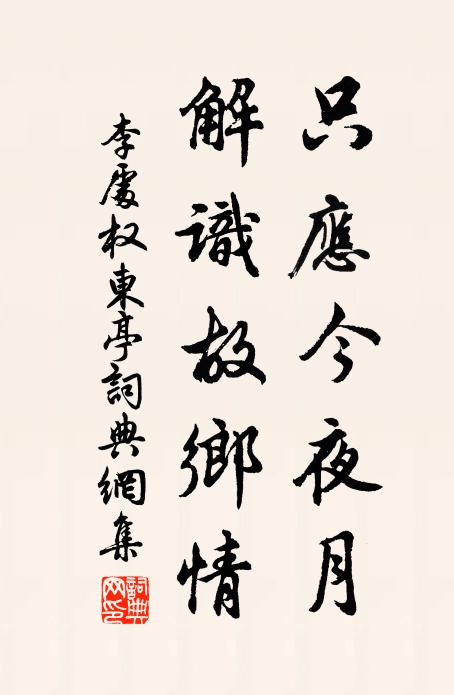 只應今夜月
解識故鄉情
李處权東亭詞典網集
詞典网印